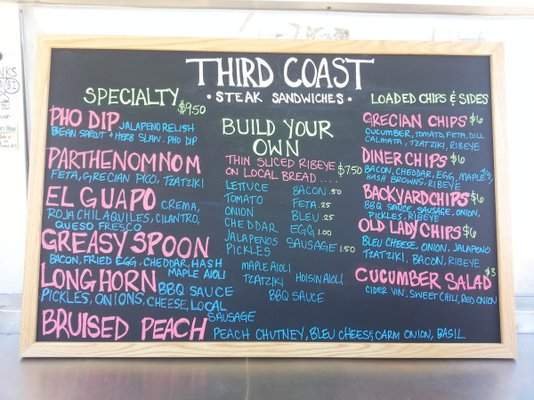 THIRD COAST
• STEAK SANDWICHES •
SPECIALTY $9.50
PHO DIP JALAPENO RELISH
BEAN SPROUT + HERB SLAW. PHO DIP
PARTHENOMNOM
FETA, GRECIAN PICO, TZATZIKI
EL GUAPO CREMA,
ROJA CHILAQUILES, CILANTRO,
QUESO FRESCO
GREASY SPOON
BACON, FRIED EGG, CHEDDAR, HASH
MAPLE AIOLI
LONGHORN BBQ SAUCE
PICKLES, ONIONS, CHEESE, LOCAL
SAUSAGE
BRUISED PEACH PEACH CHUTNEY, BLEU CHEESE, CARM ONION, BASIL
BUILD YOUR
OWN
THIN SLICED RIBEYE $7.50
ON LOCAL BREAD....
LETTUCE BACON .50
TOMATO FETA .25
ONION BLEU .25
CHEDDAR EGG 1.00
JALAPENOS SAUSAGE 1.50
PICKLES
MAPLE AIOLI
TZATZIKI HOISIN AIOLI
BBQ SAUCE
LOADED CHIPS & SIDES
GRECIAN CHIPS $6
CUCUMBER, TOMATO, FETA, DILL
CALMATA, TZATZIKI, RIBEYE
DINER CHIPS $6
BACON, CHEDDAR, EGG, MAPLE,
HASH BROWNS, RIBEYE
BACKYARD CHIPS $6
BBQ SAUCE, SAUSAGE, ONION,
PICKLES, RIBEYE
OLD LADY CHIPS $6
BLEU CHEESE, ONION, JALAPENO
TZATZIKI, BACON, RIBEYE
CUCUMBER SALAD $3
CIDER VIN, SWEET CHILI, RED ONION